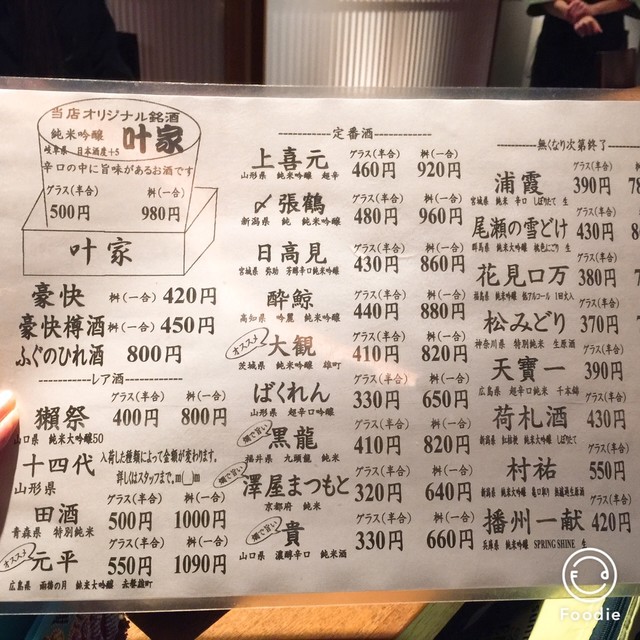 当店オリジナル銘酒
純米吟醸 叶家
岐阜県 日本酒度+5
辛口の中に旨味があるお酒です
グラス(半合) 枡(一合)
500円 980円
叶家
豪快 枡(一合) 420円
豪快樽酒 枡(一合) 450円
ふぐのひれ酒 800円
レア酒
グラス(半合) 枡(一合)
獺祭 400円 800円
山口県 純米大吟醸50
十四代 入荷した種類によって金額が変わります。
詳しくはスタッフまで。m(__)m
山形県
グラス(半合) 枡(一合)
田酒 500円 1000円
青森県 特別純米
オススメ
グラス(半合) 枡(一合)
元平 550円 1090円
広島県 雨後の月 純米大吟醸
定番酒
グラス(半合) 枡(一合)
上喜元 460円 920円
山形県 純米吟醸 超辛
グラス(半合) 枡(一合)
〆張鶴 480円 960円
新潟県 純 純米吟醸
グラス(半合) 枡(一合)
日高見 430円 860円
宮城県 弥助 芳醇辛口 純米吟醸
グラス(半合) 枡(一合)
酔鯨 440円 880円
高知県 吟麗 純米吟醸
オススメ
グラス(半合) 枡(一合)
大観 410円 820円
茨城県 純米吟醸 雄町
グラス(半合) 枡(一合)
ばくれん 330円 650円
山形県 超辛口吟醸
燗で旨い
グラス(半合) 枡(一合)
黒龍 410円 820円
福井県 九頭龍 純米
燗で旨い
グラス(半合) 枡(一合)
澤屋まつもと 320円 640円
京都府 純米
燗で旨い
グラス(半合) 枡(一合)
貴 330円 660円
山口県 濃醇辛口 純米酒
無くなり次第終了
グラス(半合)
浦霞 390円
宮城県 純米 辛口 しぼりたて 生
グラス(半合)
尾瀬の雪どけ 430円
群馬県 純米大吟醸 桃色にごり 生
グラス(半合)
花見口万 380円
福島県 純米吟醸 低アルコール 1回火入
グラス(半合)
松みどり 370円
神奈川県 特別純米 生原酒
グラス(半合)
天寶一 390円
広島県 超辛口純米 千本錦
グラス(半合)
荷札酒 430円
新潟県 紅桔梗 純米大吟醸 しぼりたて
グラス(半合)
村祐 550円
新潟県 純米大吟醸 亀口取り 無濾過生原酒
グラス(半合)
播州一献 420円
兵庫県 純米吟醸 SPRING SHINE 生
Foodie